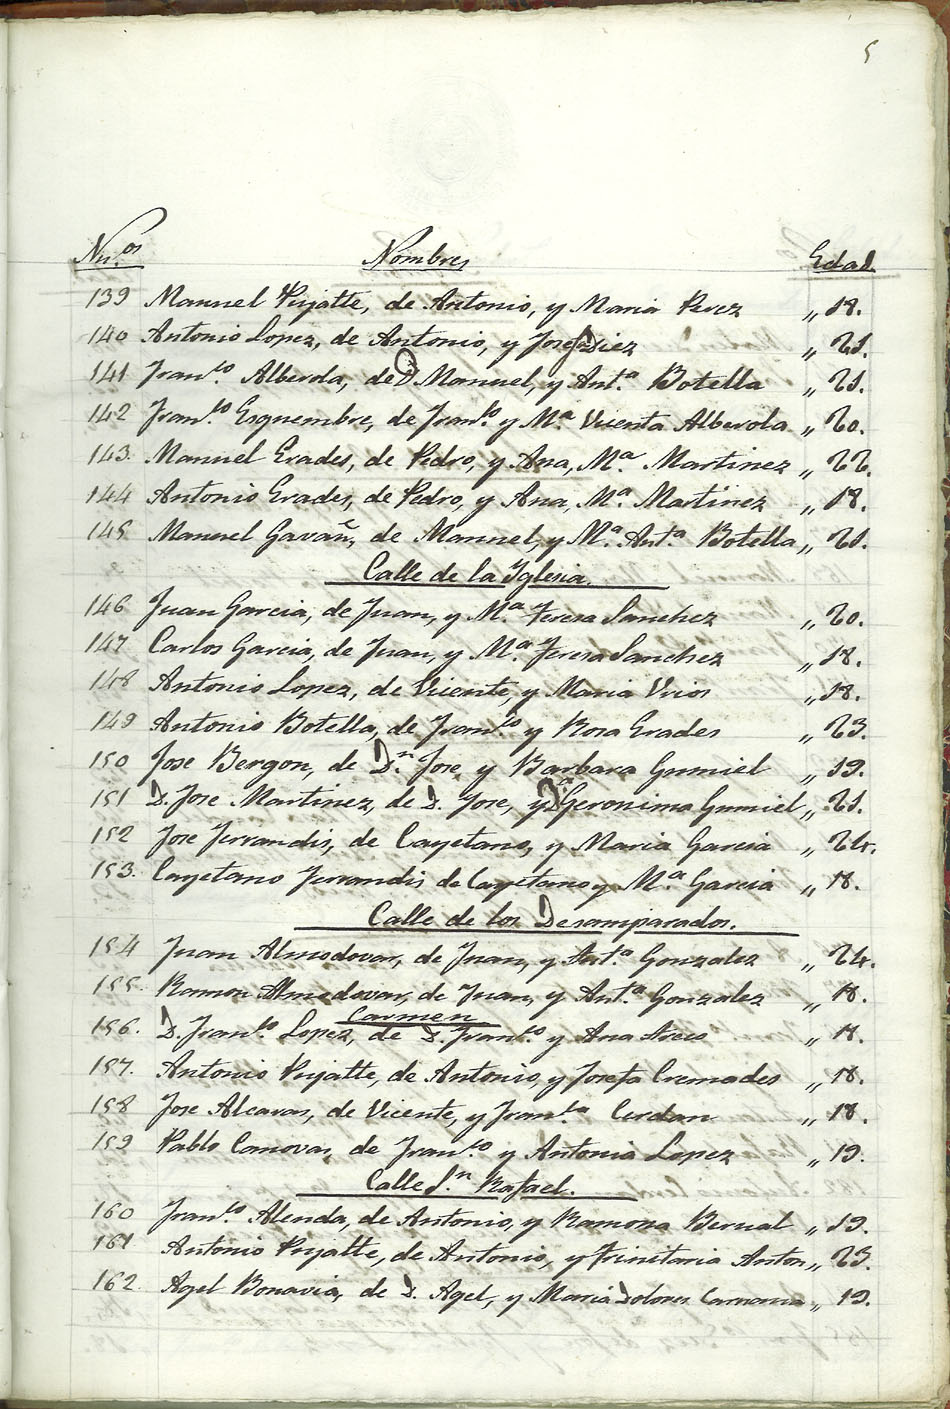 5
Nu.os Nombres Edad.
139 Manuel Pujalte, de Antonio, y Maria Perez „ 18.
140 Antonio Lopez, de Antonio, y Josefa Diez „ 21.
141 Fran.co Alberola, de D. Manuel, y Ant.a Botella „ 21.
142 Fran.co Esquembre, de Fran.co y M.a Vicenta Alberola „ 20.
143. Manuel Erades, de Pedro, y Ana, M.a Martinez „ 22.
144 Antonio Erades, de Pedro, y Ana, M.a Martinez „ 18.
145 Manuel Gavañ, de Manuel, y M.a Ant.a Botella „ 21.
Calle de la Yglesia.
146 Juan Garcia, de Juan, y M.a Teresa Sanchez „ 20.
147 Carlos Garcia, de Juan, y M.a Teresa Sanchez „ 18.
148 Antonio Lopez, de Vicente, y Maria Vrios „ 18.
149 Antonio Botella, de Fran.co y Rosa Erades „ 23.
150 Jose Bergon, de D.n Jose, y Barbara Gumiel „ 19.
151 D. Jose Martinez, de D. Jose, y D.a Geronima Gumiel „ 21.
152 Jose Ferrandis, de Cayetano, y Maria Garcia „ 24.
153. Cayetano Ferrandis de Cayetano y M.a Garcia „ 18.
Calle de los Desamparados.
154 Juan Almodovar, de Juan, y Ant.a Gonzalez „ 24.
155. Ramon Almodovar, de Juan, y Ant.a Gonzalez „ 18.
Carmen
156. D. Fran.co Lopez, de D. Fran.co y Ana „ 18.
157. Antonio Pujalte, de Antonio, y Josefa Cremades „ 18.
158 Jose Alcaraz, de Vicente, y Fran.ca Cerdan „ 18
159 Pablo Canovas, de Fran.co y Antonia Lopez „ 19.
Calle S.n Rafael.
160 Fran.co Alenda, de Antonio, y Ramona Bernal „ 19.
161 Antonio Pujalte, de Antonio, y Trinitaria Anton „ 23.
162. Agel Bonavia, de D. Agel, y Maria Dolores „ 19.